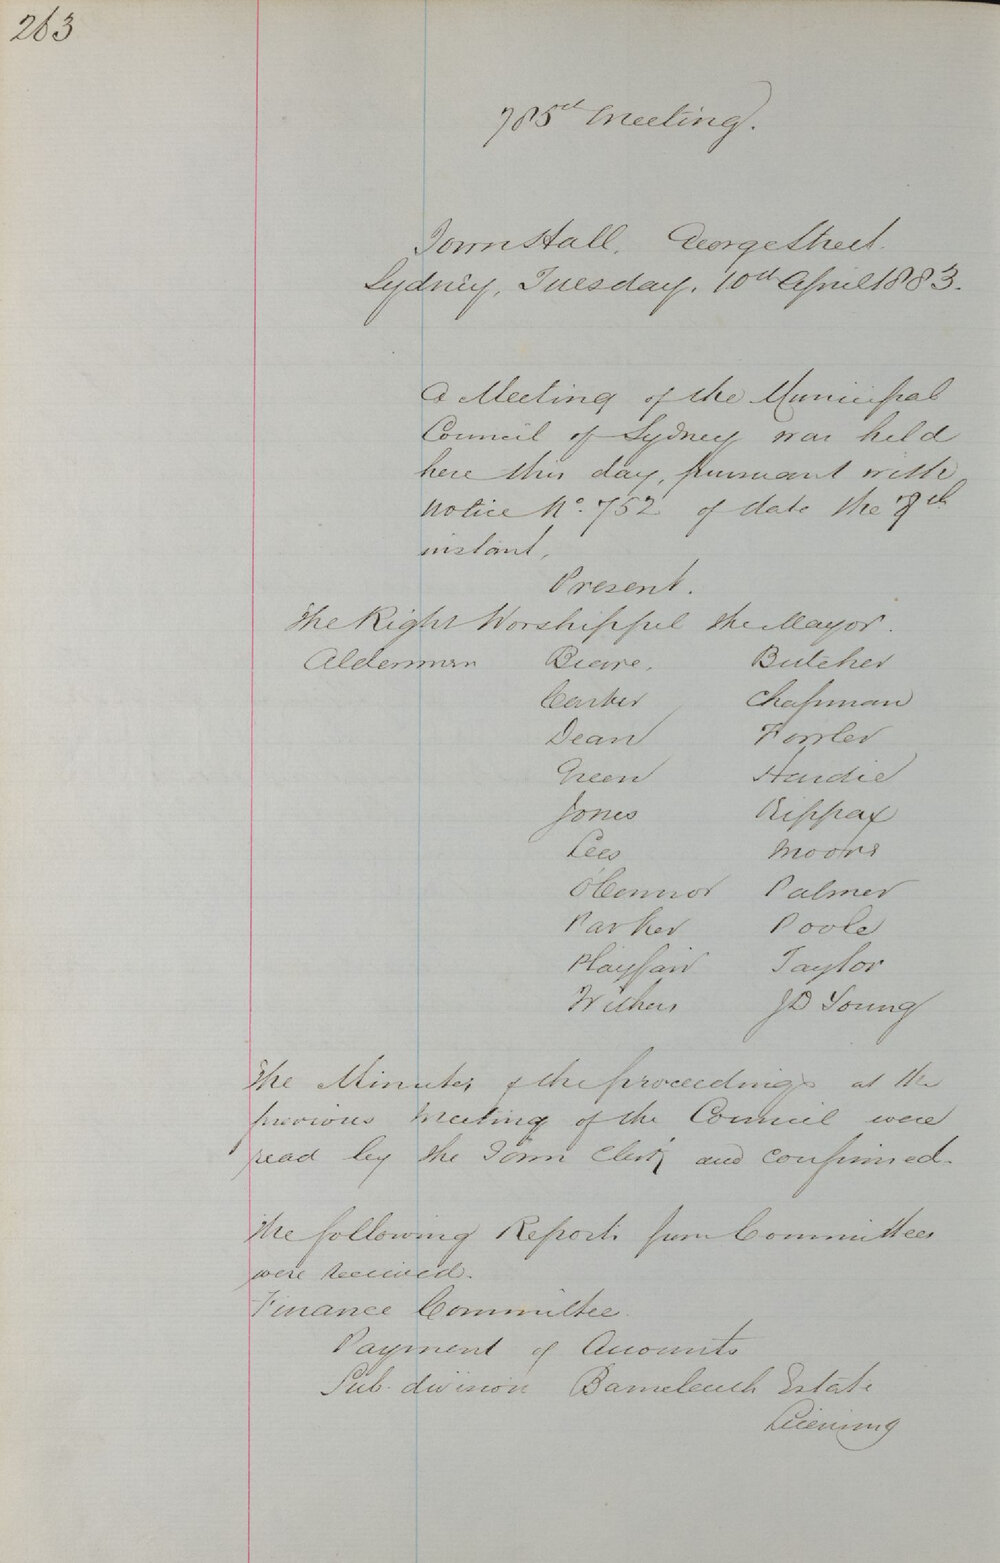 263
785th Meeting.
Town Hall, George Street.
Sydney, Tuesday, 10th April 1883.
A Meeting of the Municipal
Council of Sydney was held
here this day, pursuant with
Notice No. 752 of date the 7th
instant,
Present.
The Right Worshippel the Mayor.
Aldermen Beare, Butcher
Carter Chapman
Dean Fowler
Green Hardie
Jones Kippax
Lees Moore
O'Connor Palmer
Parker Poole
Playfair Taylor
Withers JD Young
The Minutes of the proceedings at the
previous Meeting of the Council were
read by the Town Clerk and confirmed.
The following Reports from Committees
were received.
Finance Committee.
Payment of Accounts
Sub-division Estate